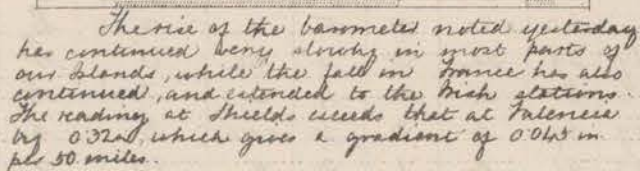 The rise of the barometer noted yesterday
has continued very slowly in most parts of
our Islands, while the fall in France has also
continued, and extended to the Irish stations.
The reading at Shields exceeds that at Valencia
by 0.32in, which gives a gradient of 0.045 in
per 50 miles.